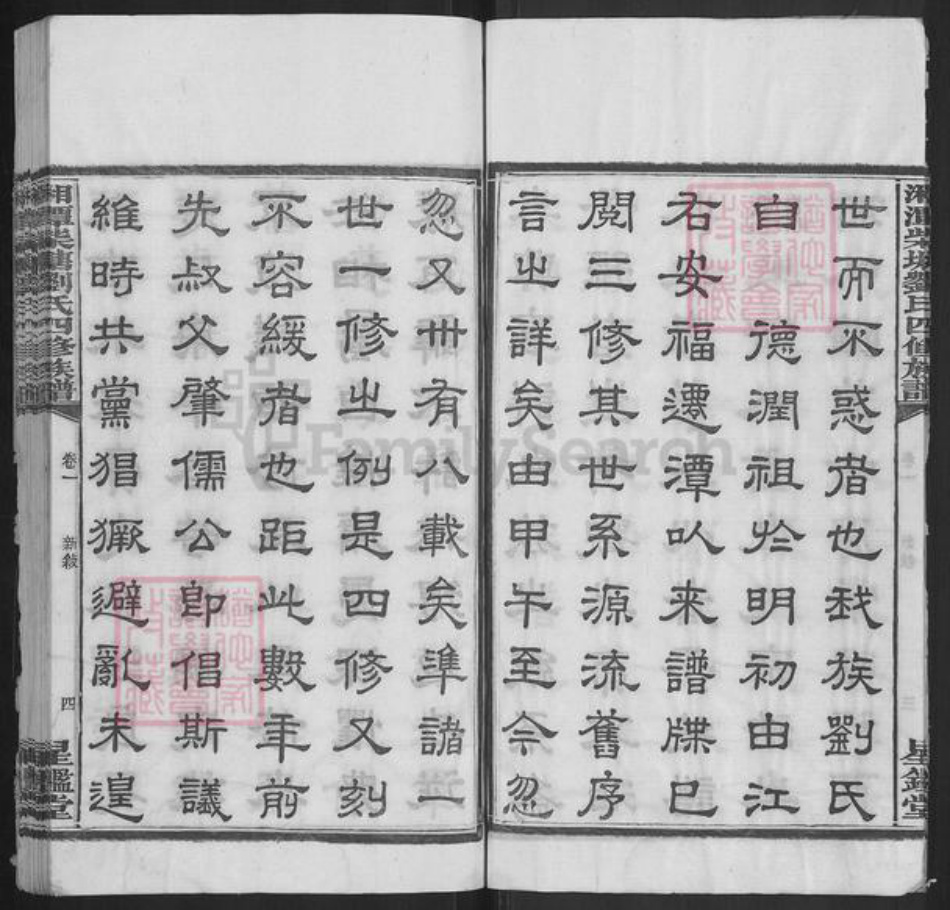 世而不惑者也我族劉氏
自德潤祖於明初由江
右安福遷潭以來譜牒已
閱三修其世系源流舊序
言之詳矣由甲午至今忽
忽又卅有八載矣準諸一
世一修之例是四修又刻
不容緩者也距此數年前
先叔父肇儒公卽倡斯議
維時共黨猖獗避亂未遑
湘潭柴塘劉氏四修族譜
卷一
新敘
四
星鑑堂
FamilySearch